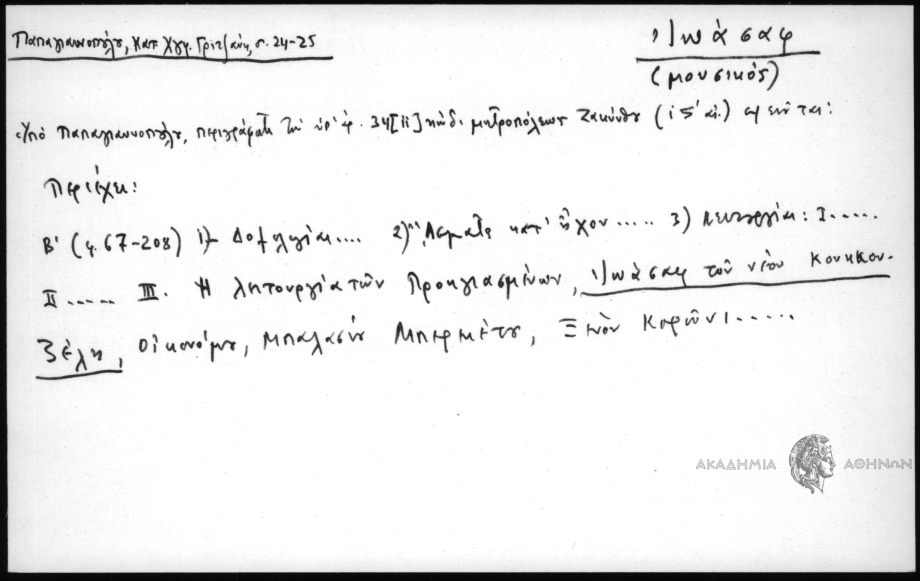 Παπαγιαννοπούλου, Κατ. Χγφ. Γριτσάνη, σ. 24-25
Ἰωάσαφ
(μουσικός)
Ὑπό Παπαγιαννοπούλου, περιγράφεται τῷ ὑπ' ἀρ. 34[ii] κώδι μητροπόλεως Ζακύνθου (ις' αἰ.)
Περιέχει:
Β' (φ. 67-208) 1)- Δοξολογίαι.... 2) κατ' ἦχον..... 3) Λειτουργίαι: I.....
II ..... III. Η λητουργία τῶν Προηγιασμένων, Ἰωάσαφ τοῦ νέου Κουκκου-
ζέλη, Οἰκονόμου, Μπαλασίου Μπερεκέτου, Ξένου Κορώνη.....
ΑΚΑΔΗΜΙΑ ΑΘΗΝΩΝ